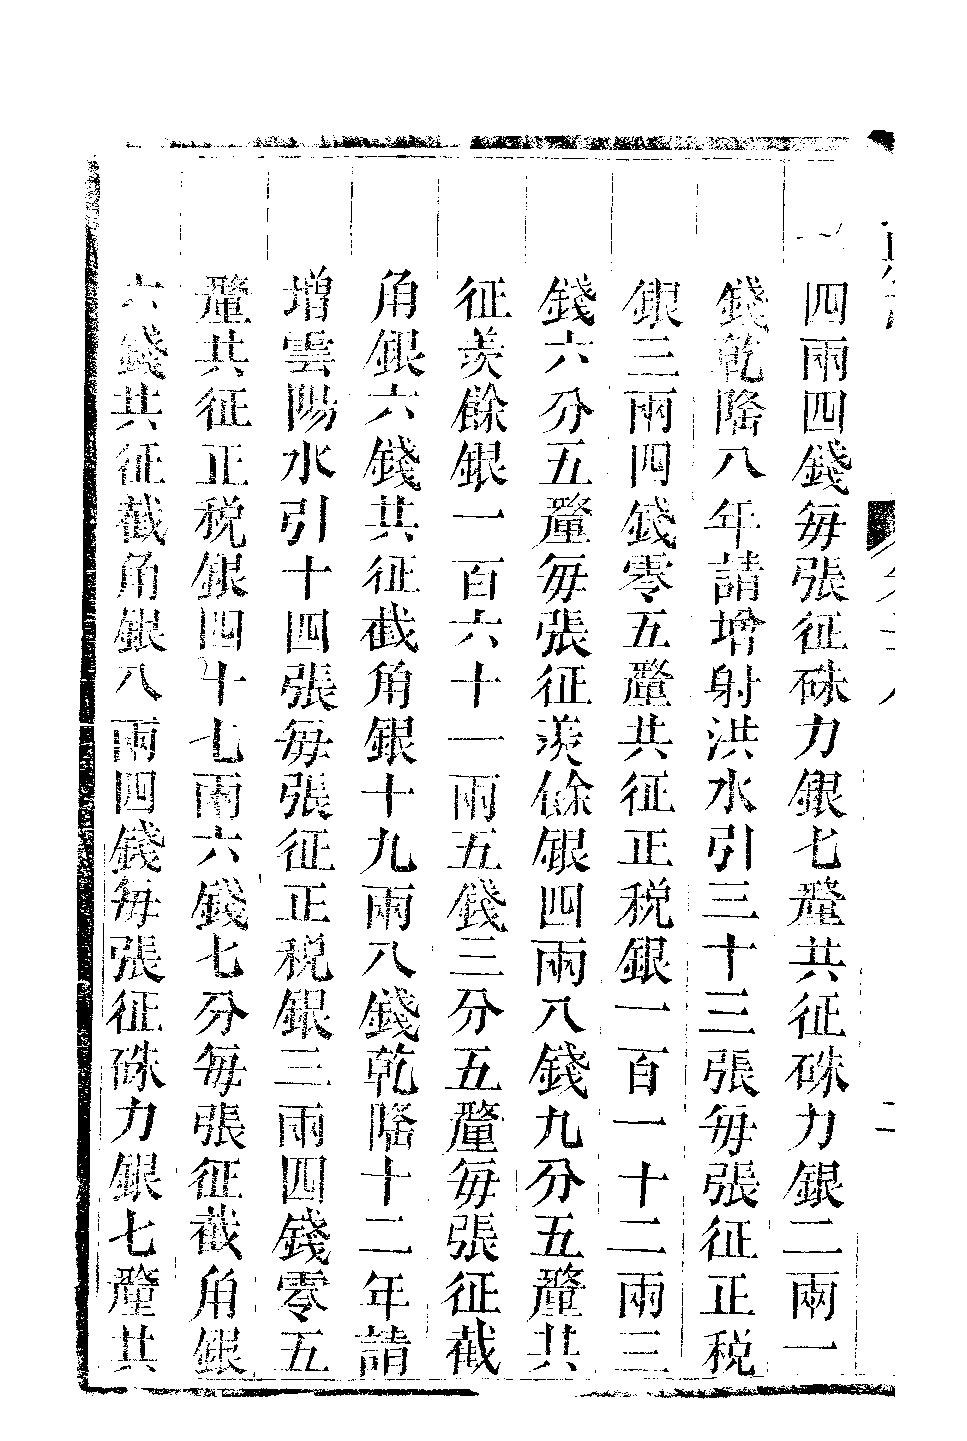 四兩四錢每張征硃力銀七釐共征硃力銀二兩一
錢乾隆八年請增射洪水引三十三張每張征正税
銀三兩四錢零五釐共征正税銀一百一十二兩三
錢六分五釐每張征羨餘銀四兩八錢九分五釐共
征羨餘銀一百六十一兩五錢三分五釐每張征截
角銀六錢共征截角銀十九兩八錢乾隆十二年請
增雲陽水引十四張每張征正税銀三兩四錢零五
釐共征正税銀四十七兩六錢七分每張征截角銀
六錢共征截角銀八兩四錢每張征硃力銀七釐共